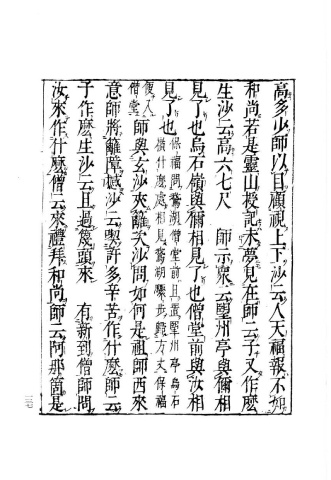 高多少師以目顧視上下沙云人天福報不如
和尚若是靈山授記未夢見在師云子又作麼
生沙云高六七尺　師示衆云望州亭與儞相
見了也烏石嶺與儞相見了也僧堂前與汝相
見了也
保福問鵞湖僧堂前且置望州亭烏石
嶺什麼處相見鵞湖驟步歸方丈保福
便入
僧堂
師與玄沙夾籬次沙問如何是祖師西來
意師將籬障撼沙云喫許多辛苦作什麼師云
子作麼生沙云且過篾頭來　有新到僧師問
汝來作什麼僧云來禮拜和尚師云阿那箇是